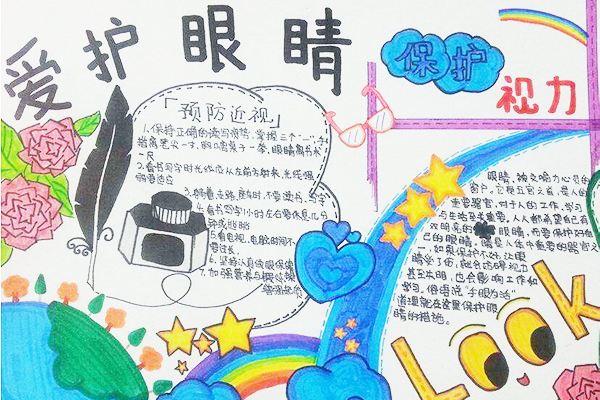 爱护眼睛
保护
视力
「预防近视」
1.保持正确的读写姿势,掌握三个"一",手
指离笔尖一寸,胸口离桌子一拳,眼睛离书本
一尺
2.看书写字时光线应从左前方射来,光线强
弱要适应
3.躺着,走路,乘车时,不要读书,写字
4.看书写字1小时左右要休息几分
5.看电视,电脑时间不
要过长
6.坚持认真做眼保健
7.加强营养
眼睛,被交喻为心灵的
窗户,它是五官之首,是人的
重要器官,对于人的工作、学习
与生活至关重要,人人都希望自己有
双明亮的眼睛,而要保护好自
己的眼睛。睛是人体中重要的器官之
一,如果保护不好,让眼
睛受了伤,就会妨碍视力
甚至失明,也会影响工作和
学习,俗语说"手眼为活"
道理就在这里保护眼
睛的措施。
Look